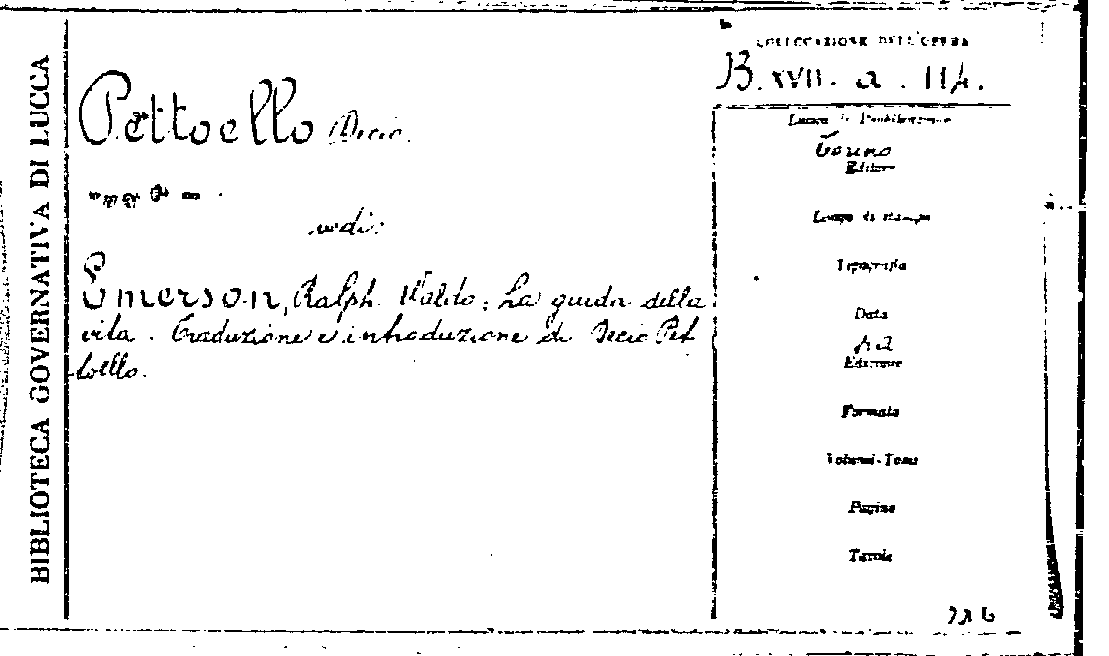 BIBLIOTECA GOVERNATIVA DI LUCCA
Pettoello Decio.
vedi:
Emerson, Ralph Waldo: La guida della
vita. Traduzione e introduzione di Decio Pet
toello.
COLLOCAZIONE DELL'OPERA
B. XVII. a. 114.
Luogo di Pubblicazione
Torino
Editore
Luogo di stampa
Tipografia
Data
Edizione
Formato
Volumi-Tomi
Pagine
Tavole